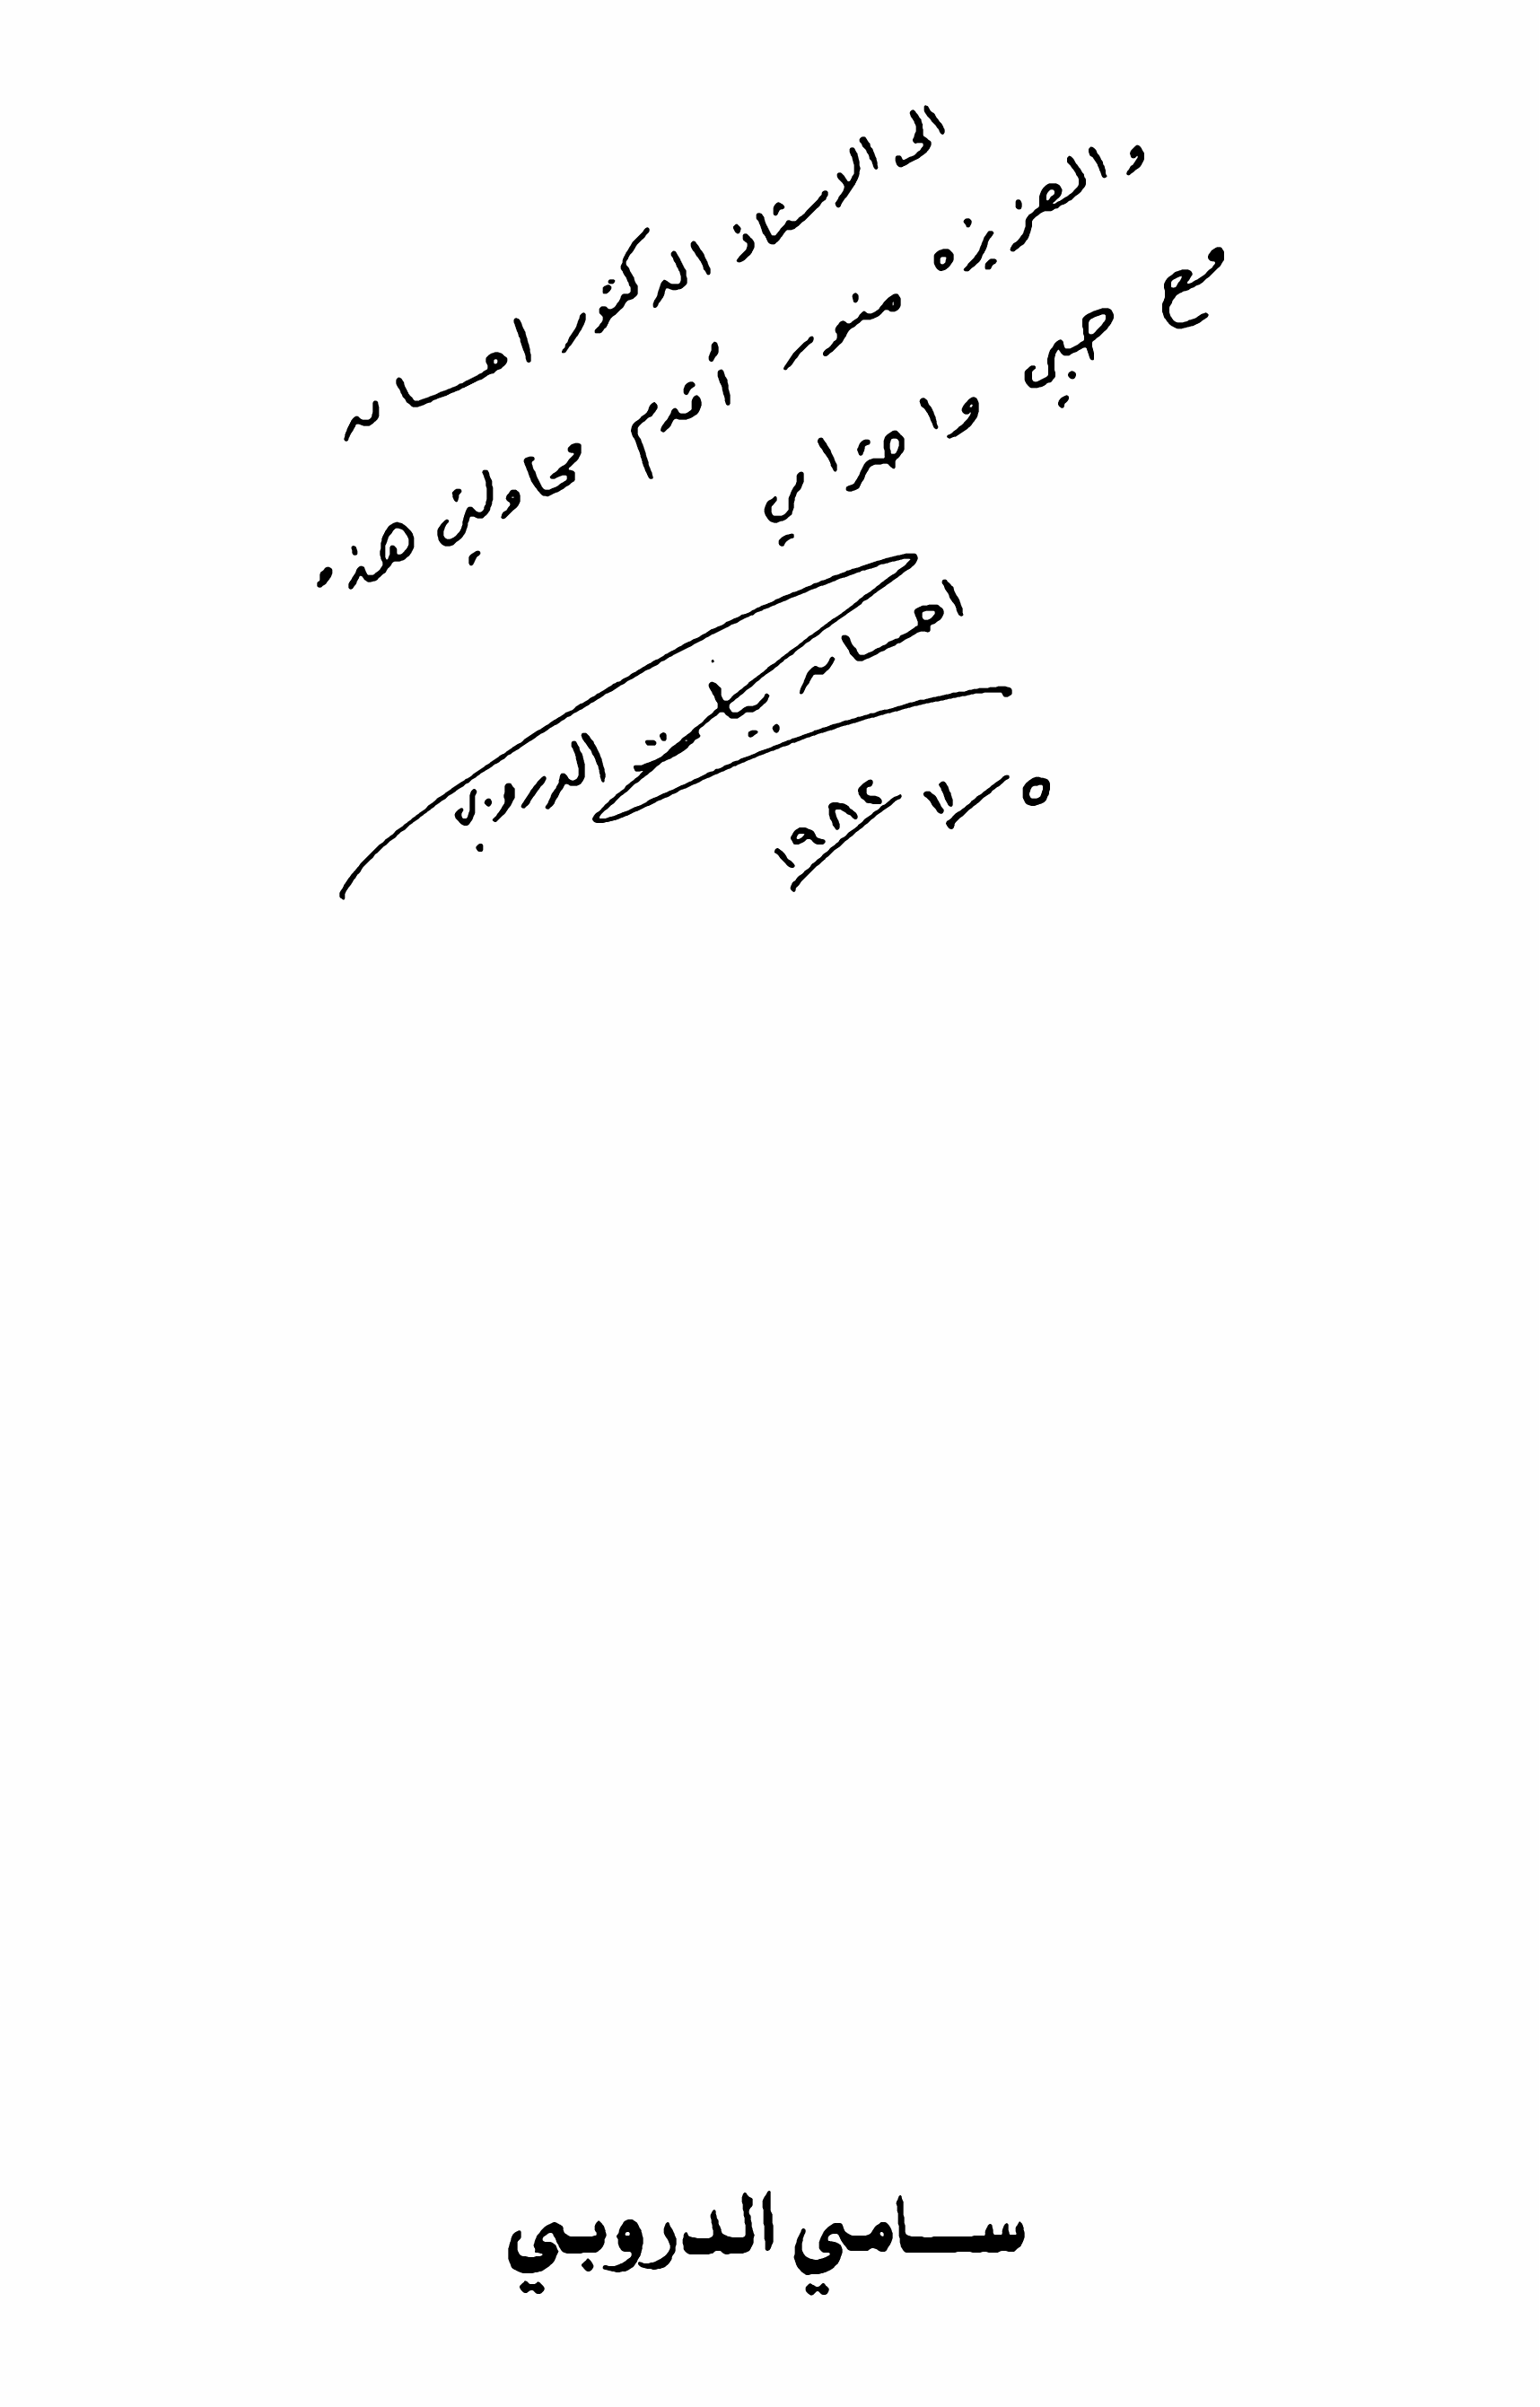 الى الاستاذ الدكتور احسان
والعزيزه منى أقدم محاولتي هذه
مع حبي واحترامي
احسان بيات الدروبي
٥ / ١١ / ١٩٨٤
سامي الدروبي